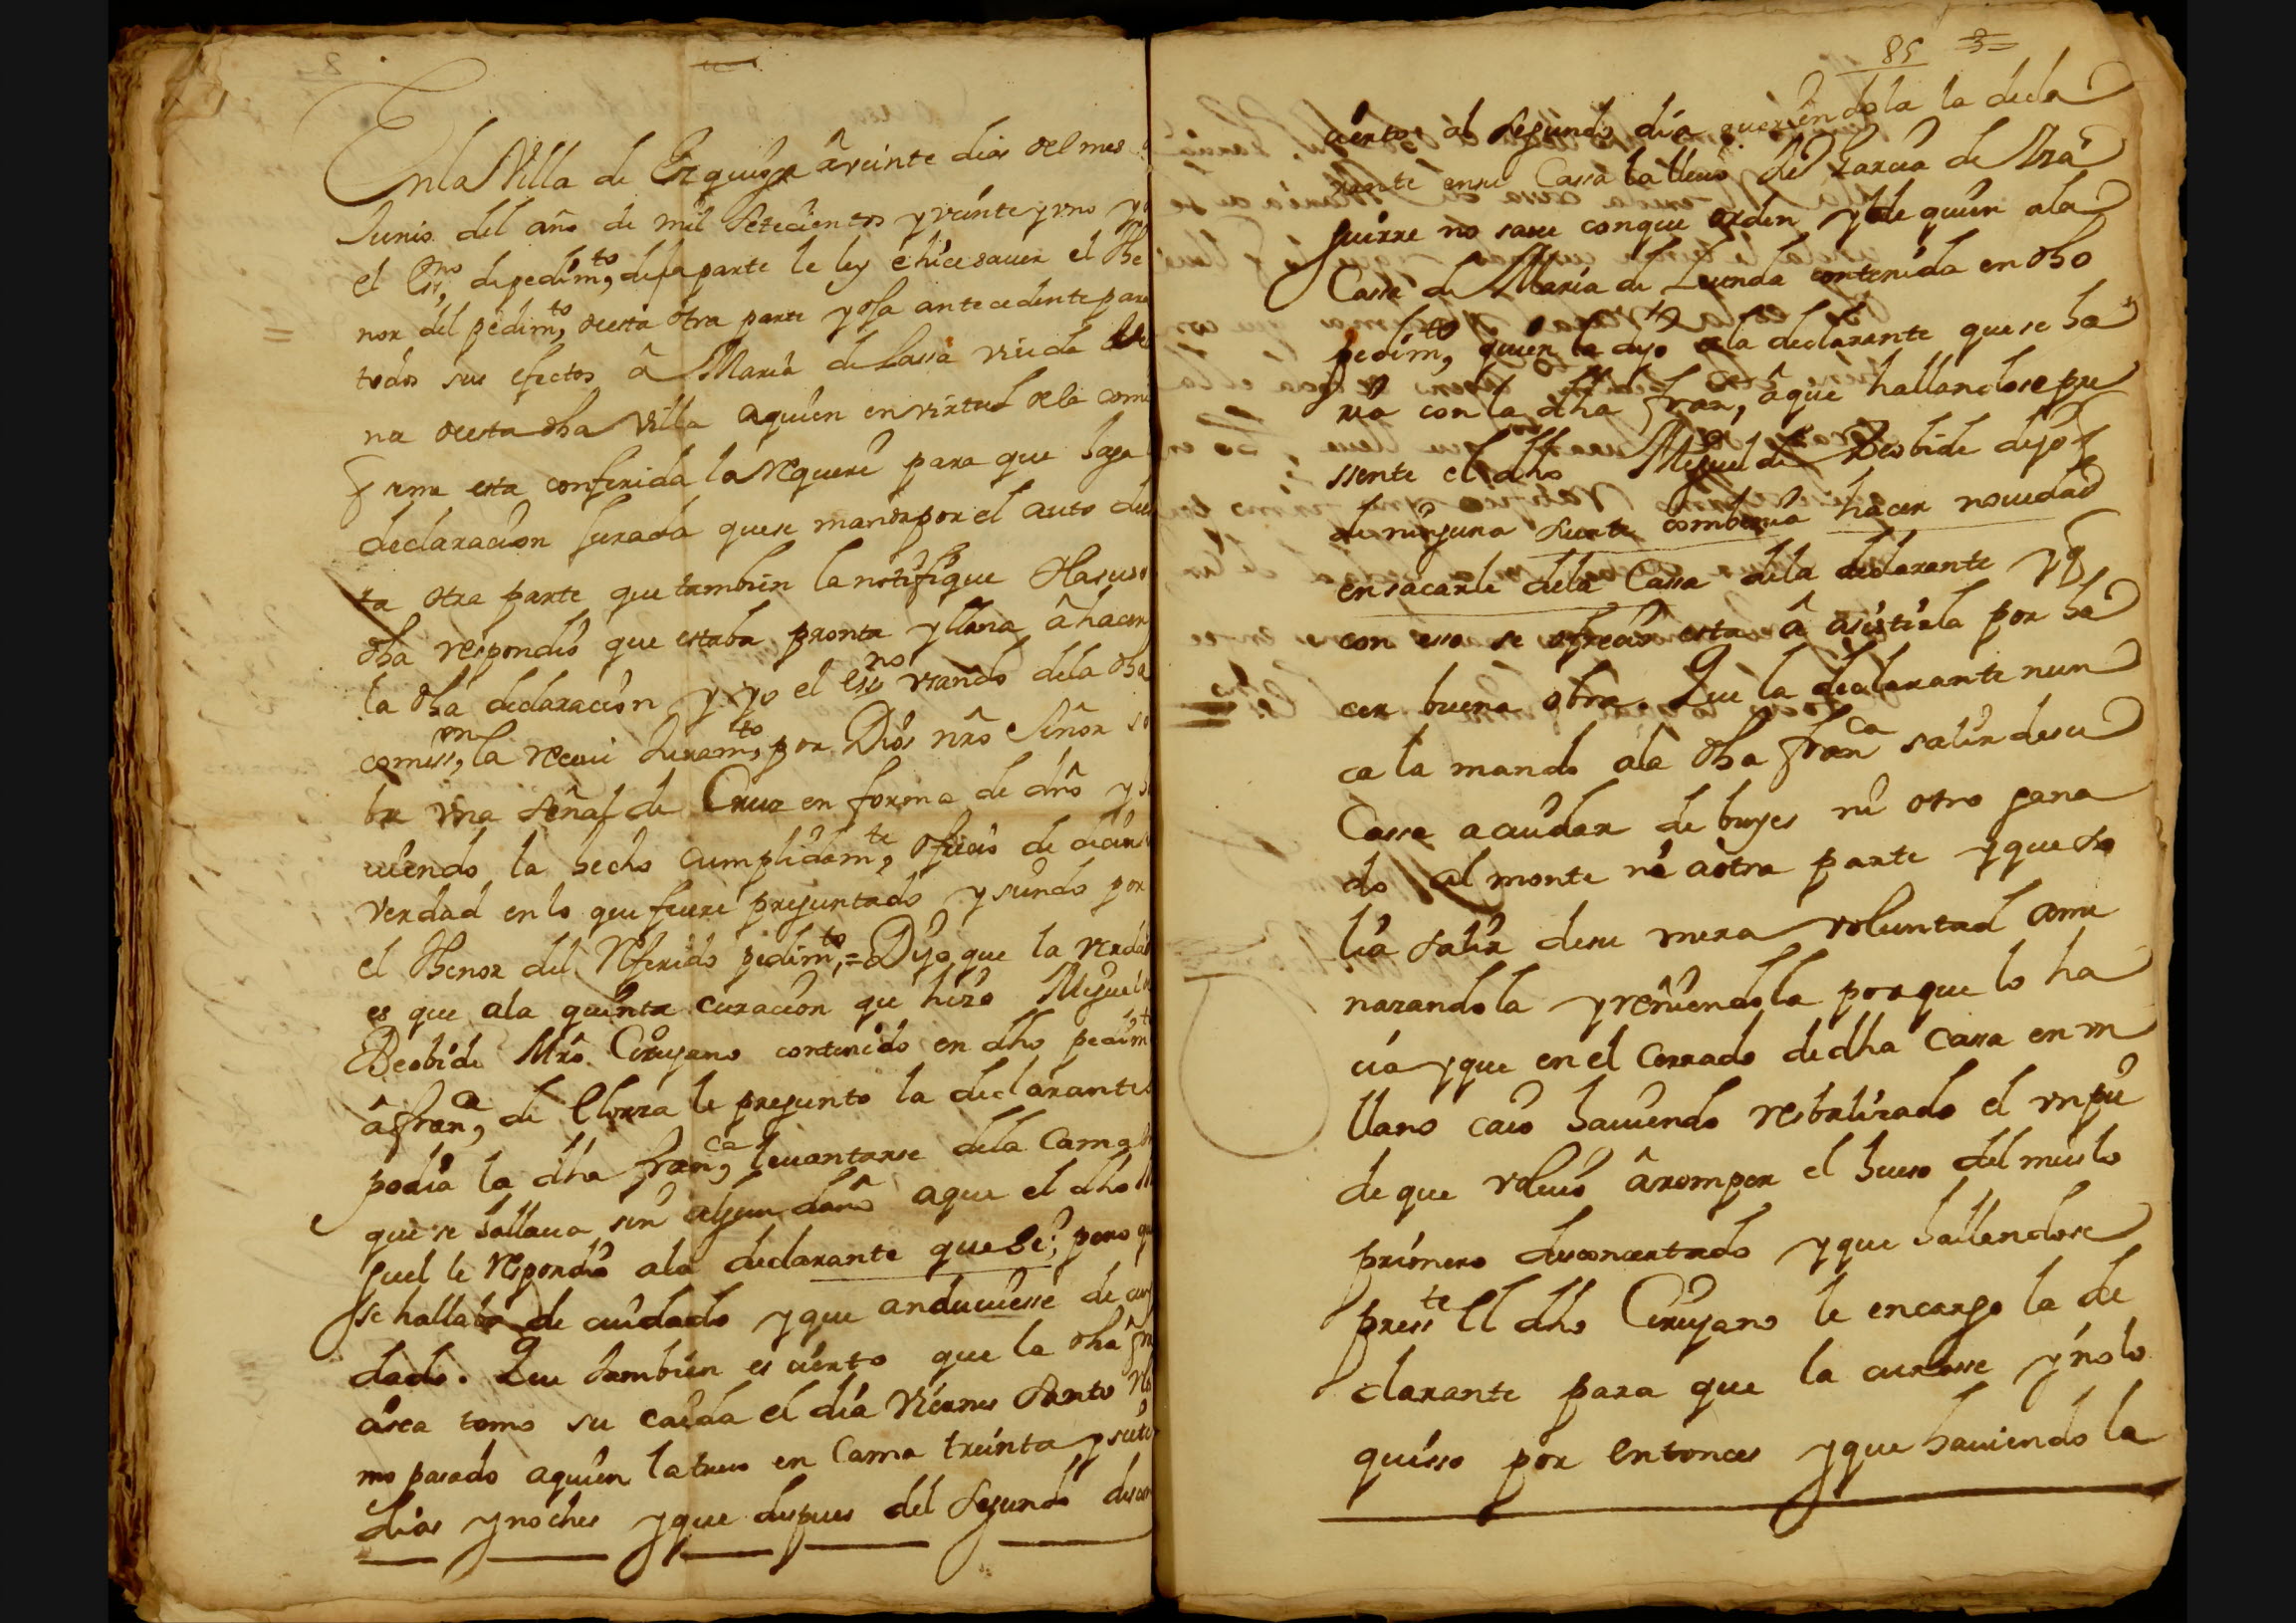 En la Villa de Ezquioga â veinte dias del mes
Junio del año de mil Setecientos y veinte y vno y
el Essno de pedimto, de la parte le ley è hice sauer el the
nor del pedimto, de esta otra parte y de la antecedente para
todos sus efectos â Maria de Lassa viuda
na de esta dha Villa aquien en virtud de la comi
que me esta conferida la requeri para que haga
declaracion Jurada que se manda por el auto de
ta otra parte que tambien la notifique
dha respondio que estaba pronta y llana â hacer
la dha declaracion y yo el Essno vsando de la dha
comisson, la receui Juramto, por Dios nrô Señor so
bre vna señal de Cruz en forma de drô y
uiendo la hecho cumplidamte, ofrecio de decir
verdad en lo que fuere preguntado y siendo por
el thenor del referido pedimto,= Dijo que la verdad
es que ala quinta curacion que hizo Miguel de
Beobide Mrô. Cirujano contenido en dho pedimto
â Franca, de Elorza le pregunto la declarante
podia la dha Franca, leuantarse dela Cama
que se hallaua sin algun daño a que el dho Mi
guel le respondio ala declarante que Si; pero que
se hallaba de cuidado y que anduuiesse de cuy
dado. Que tambien es cierto que la dha Fran
cisca tomo su caida el dia Viernes Santo
mo pasado aquien la tuuo en Cama treinta y siete
dias y noches y que despues del Segundo descon
85
cierto, al segundo dia queriendola la decla
rante en su Cassa la lleuó Garcia de Yza
guirre no saue con que orden y de quien ala
Cassa de Maria de Leunda contenida en dho
pedimto, quien la dijo ala declarante que se ha
ria con la dha Fran, â que hallandose pre
ssente el dho Miguel de Beobide dijo q
de ninguna suerte combenia hacer nouedad
en sacarle dela Cassa dela declarante y q
con esso se ofrecia esta â asistirla por ha
cer buena obra. Que la declarante nun
ca la mando ala dha Franca salir de su
Cassa a cuidar de bueyes ni otro gana
do al monte ni a otra parte y que so
lia salir de su mera voluntad ame
nazandola y riñiendola porque lo ha
cia y que en el Cerrado de dha Cassa en vn
llano caio hauiendo resbalizado el vn pie
de que voluio â romper el hueso del muslo
primero desconcertado y que hallandose
presste El dho Cirujano le encargo la de
clarante para que la curasse y no lo
quisso por entonces y que hauiendo la